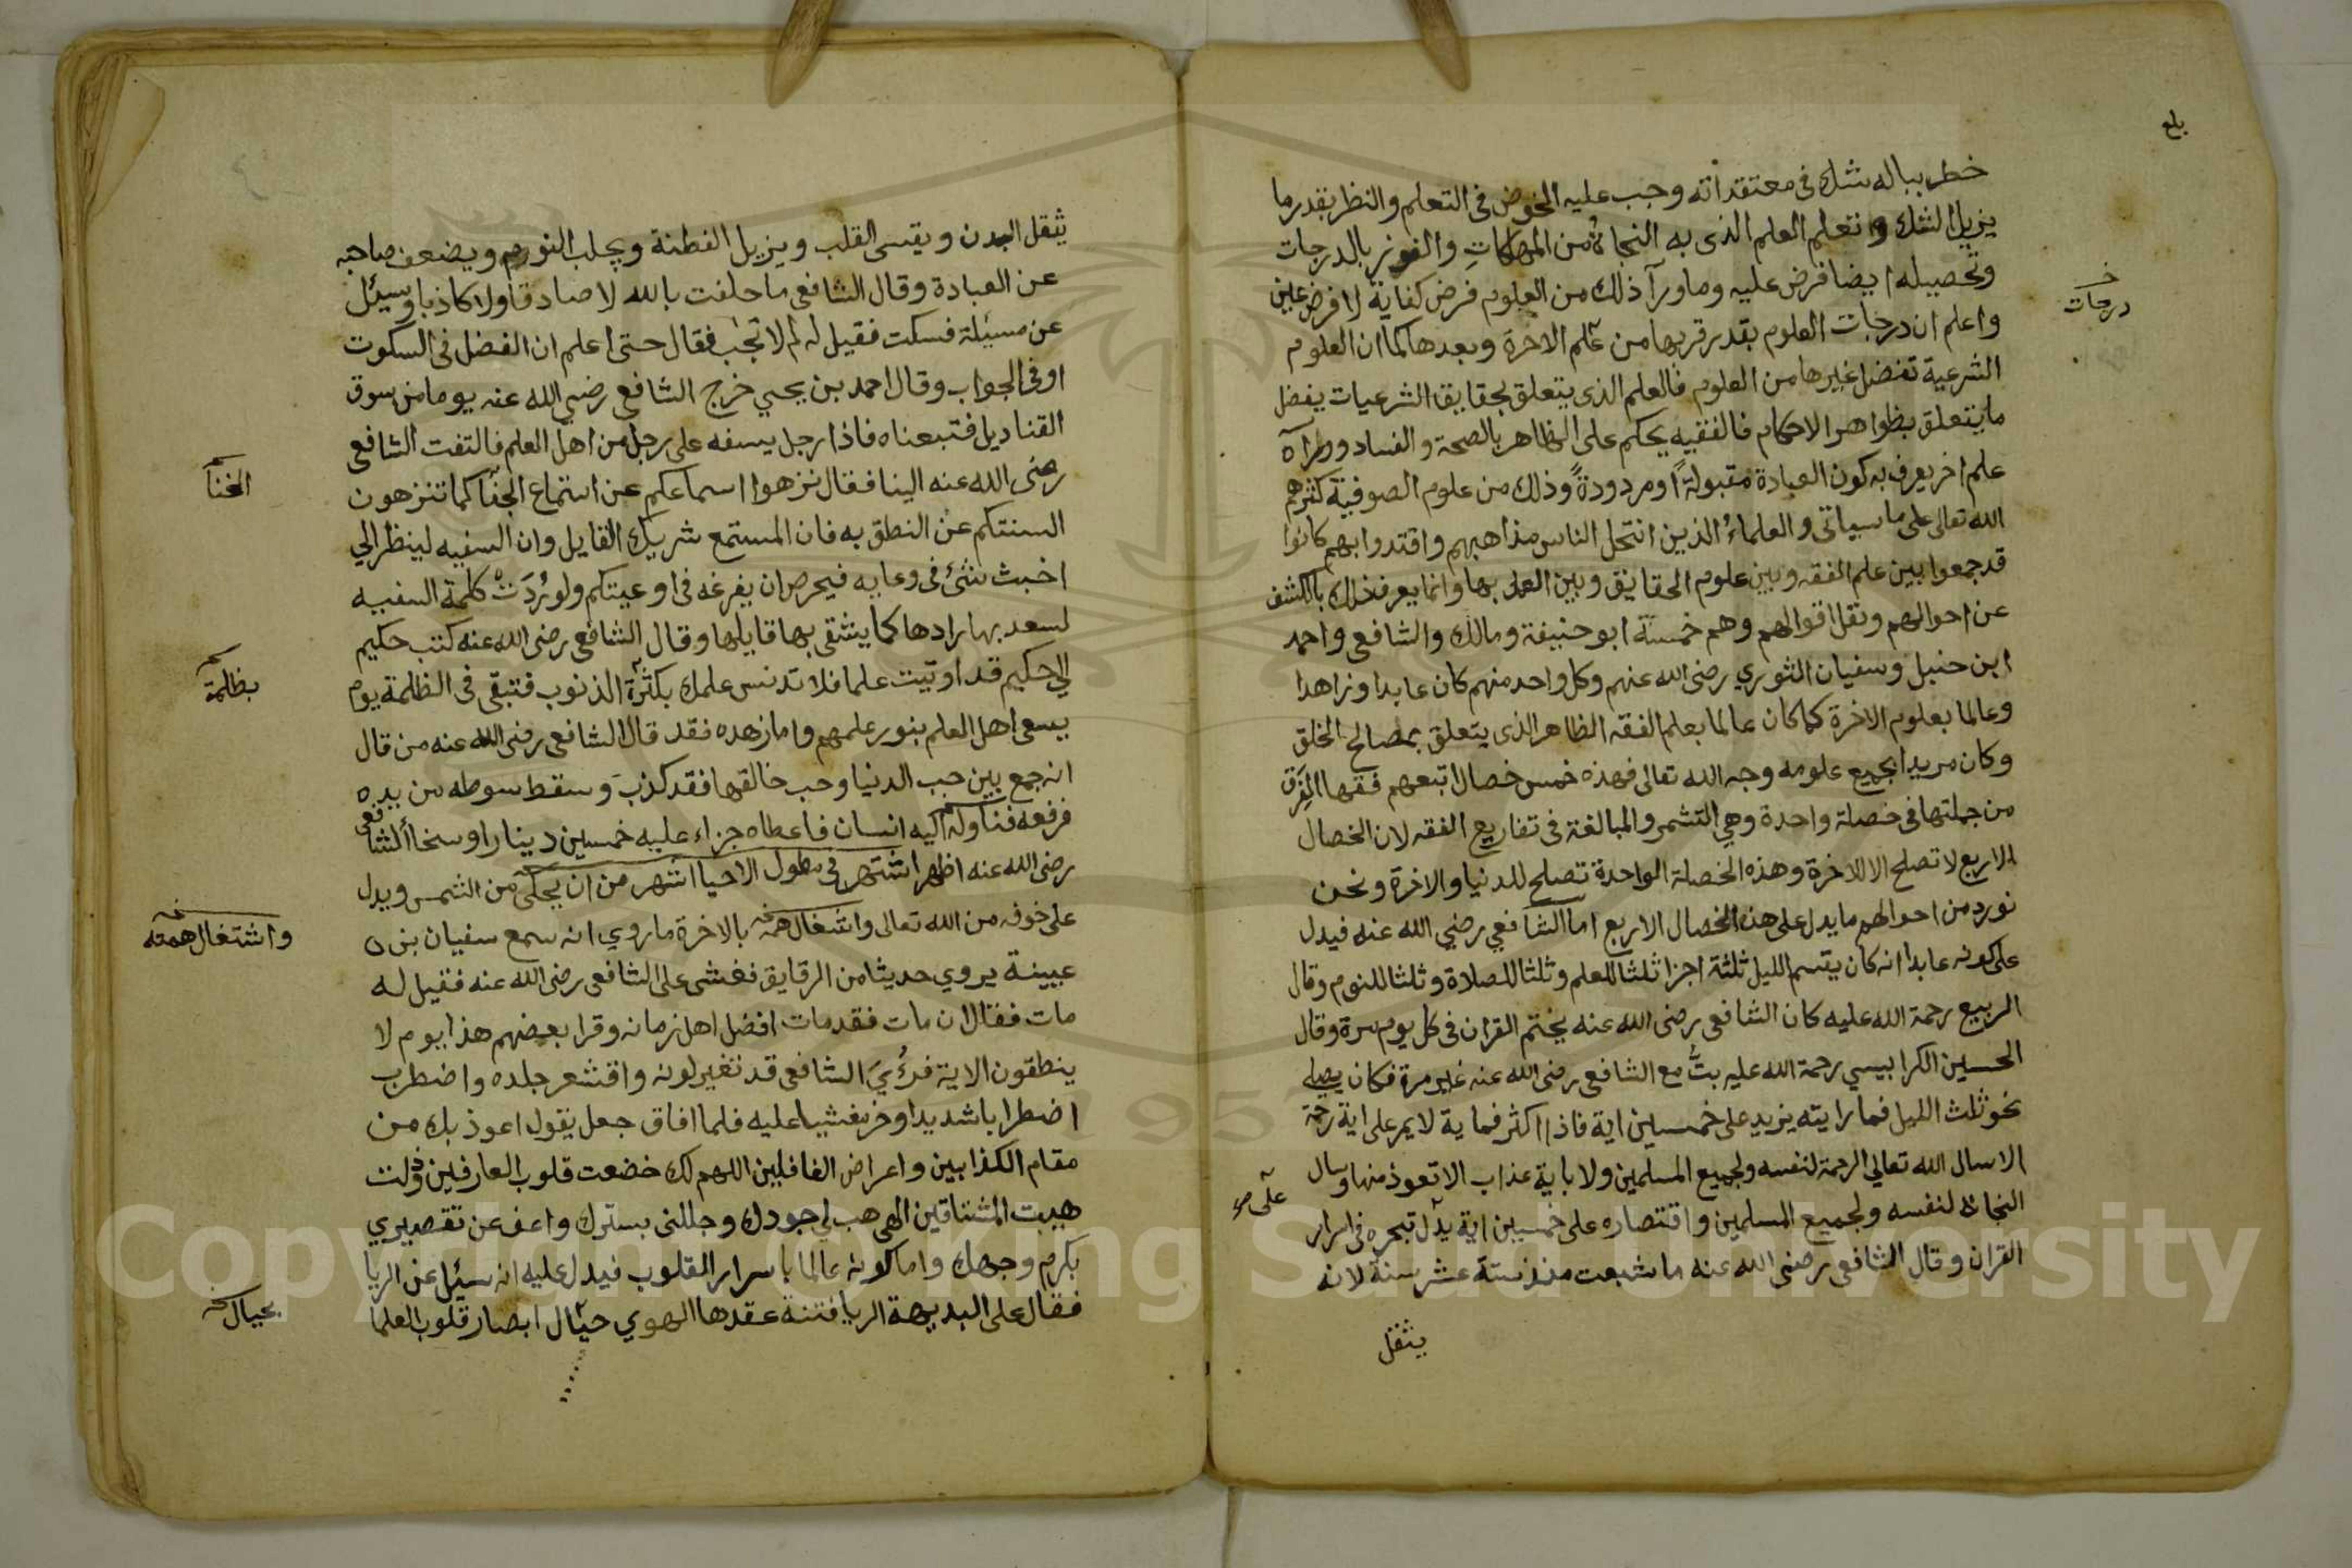 بلغ
خطر بباله شك في معتقداته وجب عليه الخوض في التعلم والنظر بقدر ما
يزيل الشك وتعلم العلم الذى به النجاة من المهلكات والفوز بالدرجات
وتحصيله ايضا فرض عليه وما ورآ ذلك من العلوم فرض كفاية لا فرض عين
درجات
واعلم ان درجات العلوم بقدر قربها من علم الاخرة وبعدها كما ان العلوم
الشرعية تفضل غيرها من العلوم فالعلم الذى يتعلق بحقايق الشرعيات يفضل
ما يتعلق بظواهر الاحكام فالفقيه يحكم على الظاهر بالصحة والفساد وورآه
علم اخر يعرف به كون العبادة مقبولةً او مردودةً وذلك من علوم الصوفية كثرهم
الله تعالى على ما سياتى والعلماءُ الذين انتحل الناس مذاهبهم واقتدوا بهم كانوا
قد جمعوا بين علم الفقه وبين علوم الحقايق وبين العمل بها وانما يعرف ذلك بالكشف
عن احوالهم ونقل اقوالهم وهم خمسة ابو حنيفة ومالك والشافعى واحمد
ابن حنبل وسفيان الثوري رضى الله عنهم وكل واحد منهم كان عابدا وزاهدا
وعالما بعلوم الاخرة كما كان عالما بعلم الفقه الظاهر الذى يتعلق بمصالح الخلق
وكان مريدا بجميع علومه وجه الله تعالى فهذه خمس خصال اتبعهم فقها الفِرَق
من جملتها في خصلة واحدة وهي التشمر والمبالغة فى تفاريع الفقه لان الخصال
الاربع لا تصلح الا للاخرة وهذه الخصلة الواحدة تصلح للدنيا والاخرة ونحن
نورد من احوالهم ما يدل على هذه الخصال الاربع اما الشافعي رضي الله عنه فيدل
على كونه عابدا انه كان يقسم الليل ثلثة اجزا ثلثا للعلم وثلثا للصلاة وثلثا للنوم وقال
الربيع رحمة الله عليه كان الشافعى رضى الله عنه يختم القران في كل يوم مرة وقال
الحسين الكرابيسي رحمة الله عليه بتُّ مع الشافعى رضى الله عنه غير مرة فكان يصلي
نحو ثلث الليل فما رايته يزيد على خمسين اية فاذا اكثر فماية لا يمر على اية رحمة
الا سال الله تعالي الرحمة لنفسه ولجميع المسلمين ولا باية عذاب الا تعوذ منها وسال
النجاة لنفسه ولجميع المسلمين واقتصاره على خمسين اية يدل تبحره فى اسرار
على صح
القران وقال الشافعى رضى الله عنه ما شبعت منذ ستة عشر سنة لانه
يثقل
يثقل البدن ويقسى القلب ويزيل الفطنة ويجلب النوم ويضعف صاحبه
عن العبادة وقال الشافعى ما حلفت بالله لا صادقا ولا كاذبا وسيئل
عن مسيلة فسكت فقيل له لم لا تجب فقال حتى اعلم ان الفضل في السكوت
او في الجواب وقال احمد بن يحيي خرج الشافعي رضي الله عنه يوما من سوق
القناديل فتبعناه فاذا رجل يسفه على رجل من اهل العلم فالتفت الشافعى
رضى الله عنه الينا فقال نزهوا اسماعكم عن استماع الجفا كما تنزهون
الخنا
السنتكم عن النطق به فان المستمع شريك القايل وان السفيه لينظر الي
اخبث شئ فى وعايه فيحرص ان يفرغه في اوعيتكم ولو رُدَتْ كلمة السفيه
لسعد بها رادها كما يشقى بها قايلها وقال الشافعى رضى الله عنه كتب حكيم
الي حكيم قد اوتيت علما فلا تدنس علمك بكثرة الذنوب فتبقى فى الظلمة يوم
بظلمة
يسعى اهل العلم بنور علمهم واما زهده فقد قال الشافعى رضى الله عنه من قال
انه جمع بين حب الدنيا وحب خالقها فقد كذبَ وسقط سوطه من يده
فرفعه فناوله اليه انسان فاعطاه جزاء عليه خمسين دينارا وسخا الشافعى
رضى الله عنه اظهر اشتهر في مطول الاحيا اشهر من ان يحكى من الشمس ويدل
على خوفه من الله تعالى واشغال همه بالاخرة ما روي انه سمع سفيان بن
واشتغال همته
عيينة يروي حديثا من الرقايق فغشى على الشافعى رضى الله عنه فقيل له
مات فقال ان مات فقد مات افضل اهل زمانه وقرا بعضهم هذا يوم لا
ينطقون الاية فرُئِيَ الشافعى قد تغير لونه واقشعر جلده واضطرب
اضطرابا شديدا وخر مغشيا عليه فلما افاق جعل يقول اعوذ بك من
مقام الكذابين واعراض الغافلين اللهم لك خضعت قلوب العارفين وذلت
هيبت المشتاقين الهى هب لي جودك وجللنى بسترك واعف عن تقصيري
بكرم وجهك واما كونه عالما باسرار القلوب فيدل عليه انه سيئل عن الريا
فقال على البديهة الريا فتنة عقدها الهوي حيال ابصار قلوب العلما
بحيال
Copyright © King Saud University